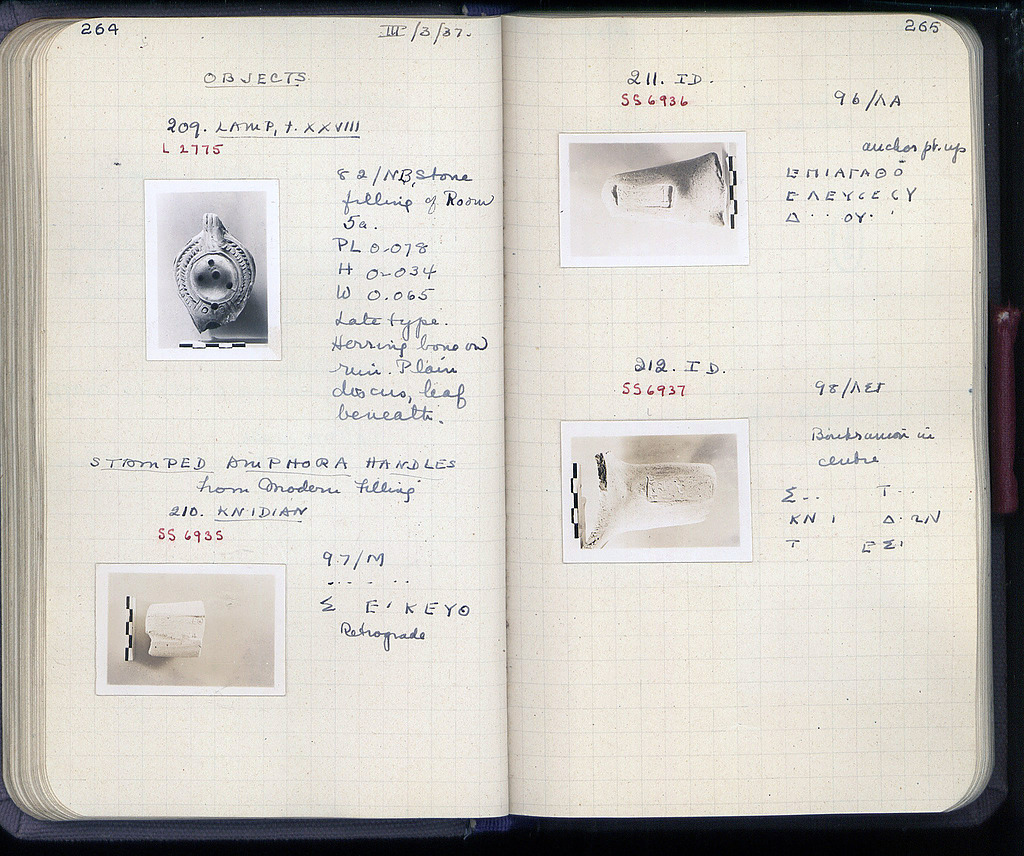 264
III/3/37.
OBJECTS
209. LAMP, t. XXVIII
L 2775
82/NB, Stone
filling of Room
5a.
PL 0.078
H 0.034
W 0.065
Late type.
Herring bone on
rim. Plain
discus, leaf
beneath.
STAMPED AMPHORA HANDLES
from Modern filling
210. KNIDIAN
SS 6935
97/M
Σ Ε' ΚΕΥΘ
Retrograde
265
211. ID.
SS 6936
96/ΛΑ
anchor pt. up
ΕΠΙΑΓΑΘΟ
ΕΛΕΥCΕCΥ
Δ · · ΟΥ · '
212. ID.
SS 6937
98/ΛΣΤ
Boukranion in
centre
Σ.. Τ..
ΚΝΙ Δ·ΙΝ
Τ ΕΣΙ